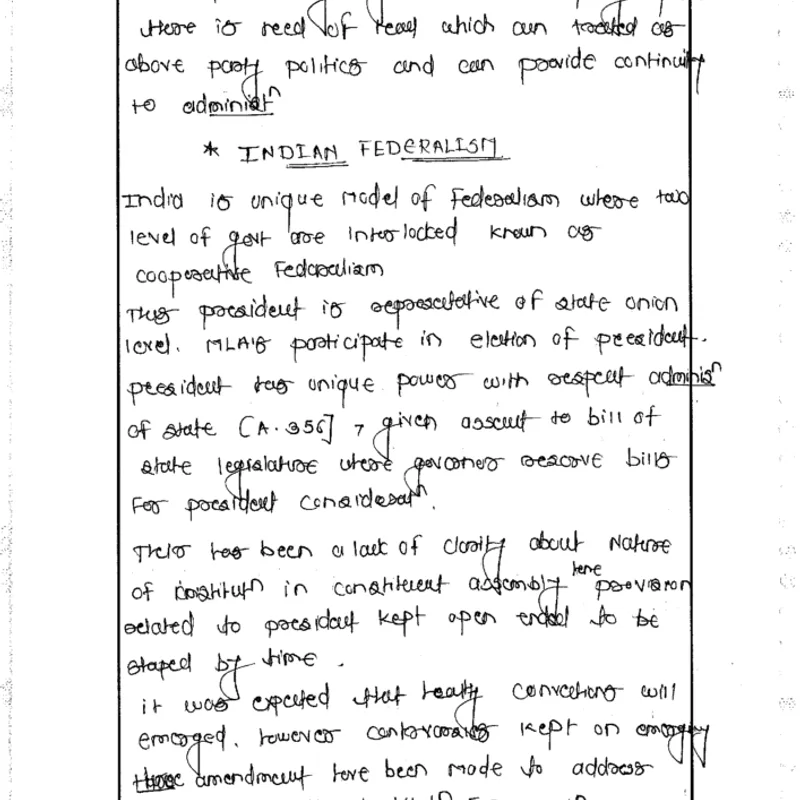 there is need of head which can treated as
above party politics and can provide continuity
to administⁿ
* INDIAN FEDERALISM
India is unique model of Federalism where two
level of govt are Interlocked known as
cooperative Federalism
Thus president is representative of state union
level. MLA's participate in election of president.
president has unique power with respect adminisⁿ
of state [A.356], given assent to bill of
state legislature where governer reserve bills
For president consideratⁿ.
There has been a lack of clarity about Nature
of constitutⁿ in constituent assembly hence provision
related to president kept open ended to be
shaped by time.
it was expected that healty convections will
emerged. however controversies kept on emerging
amendment have been made to address